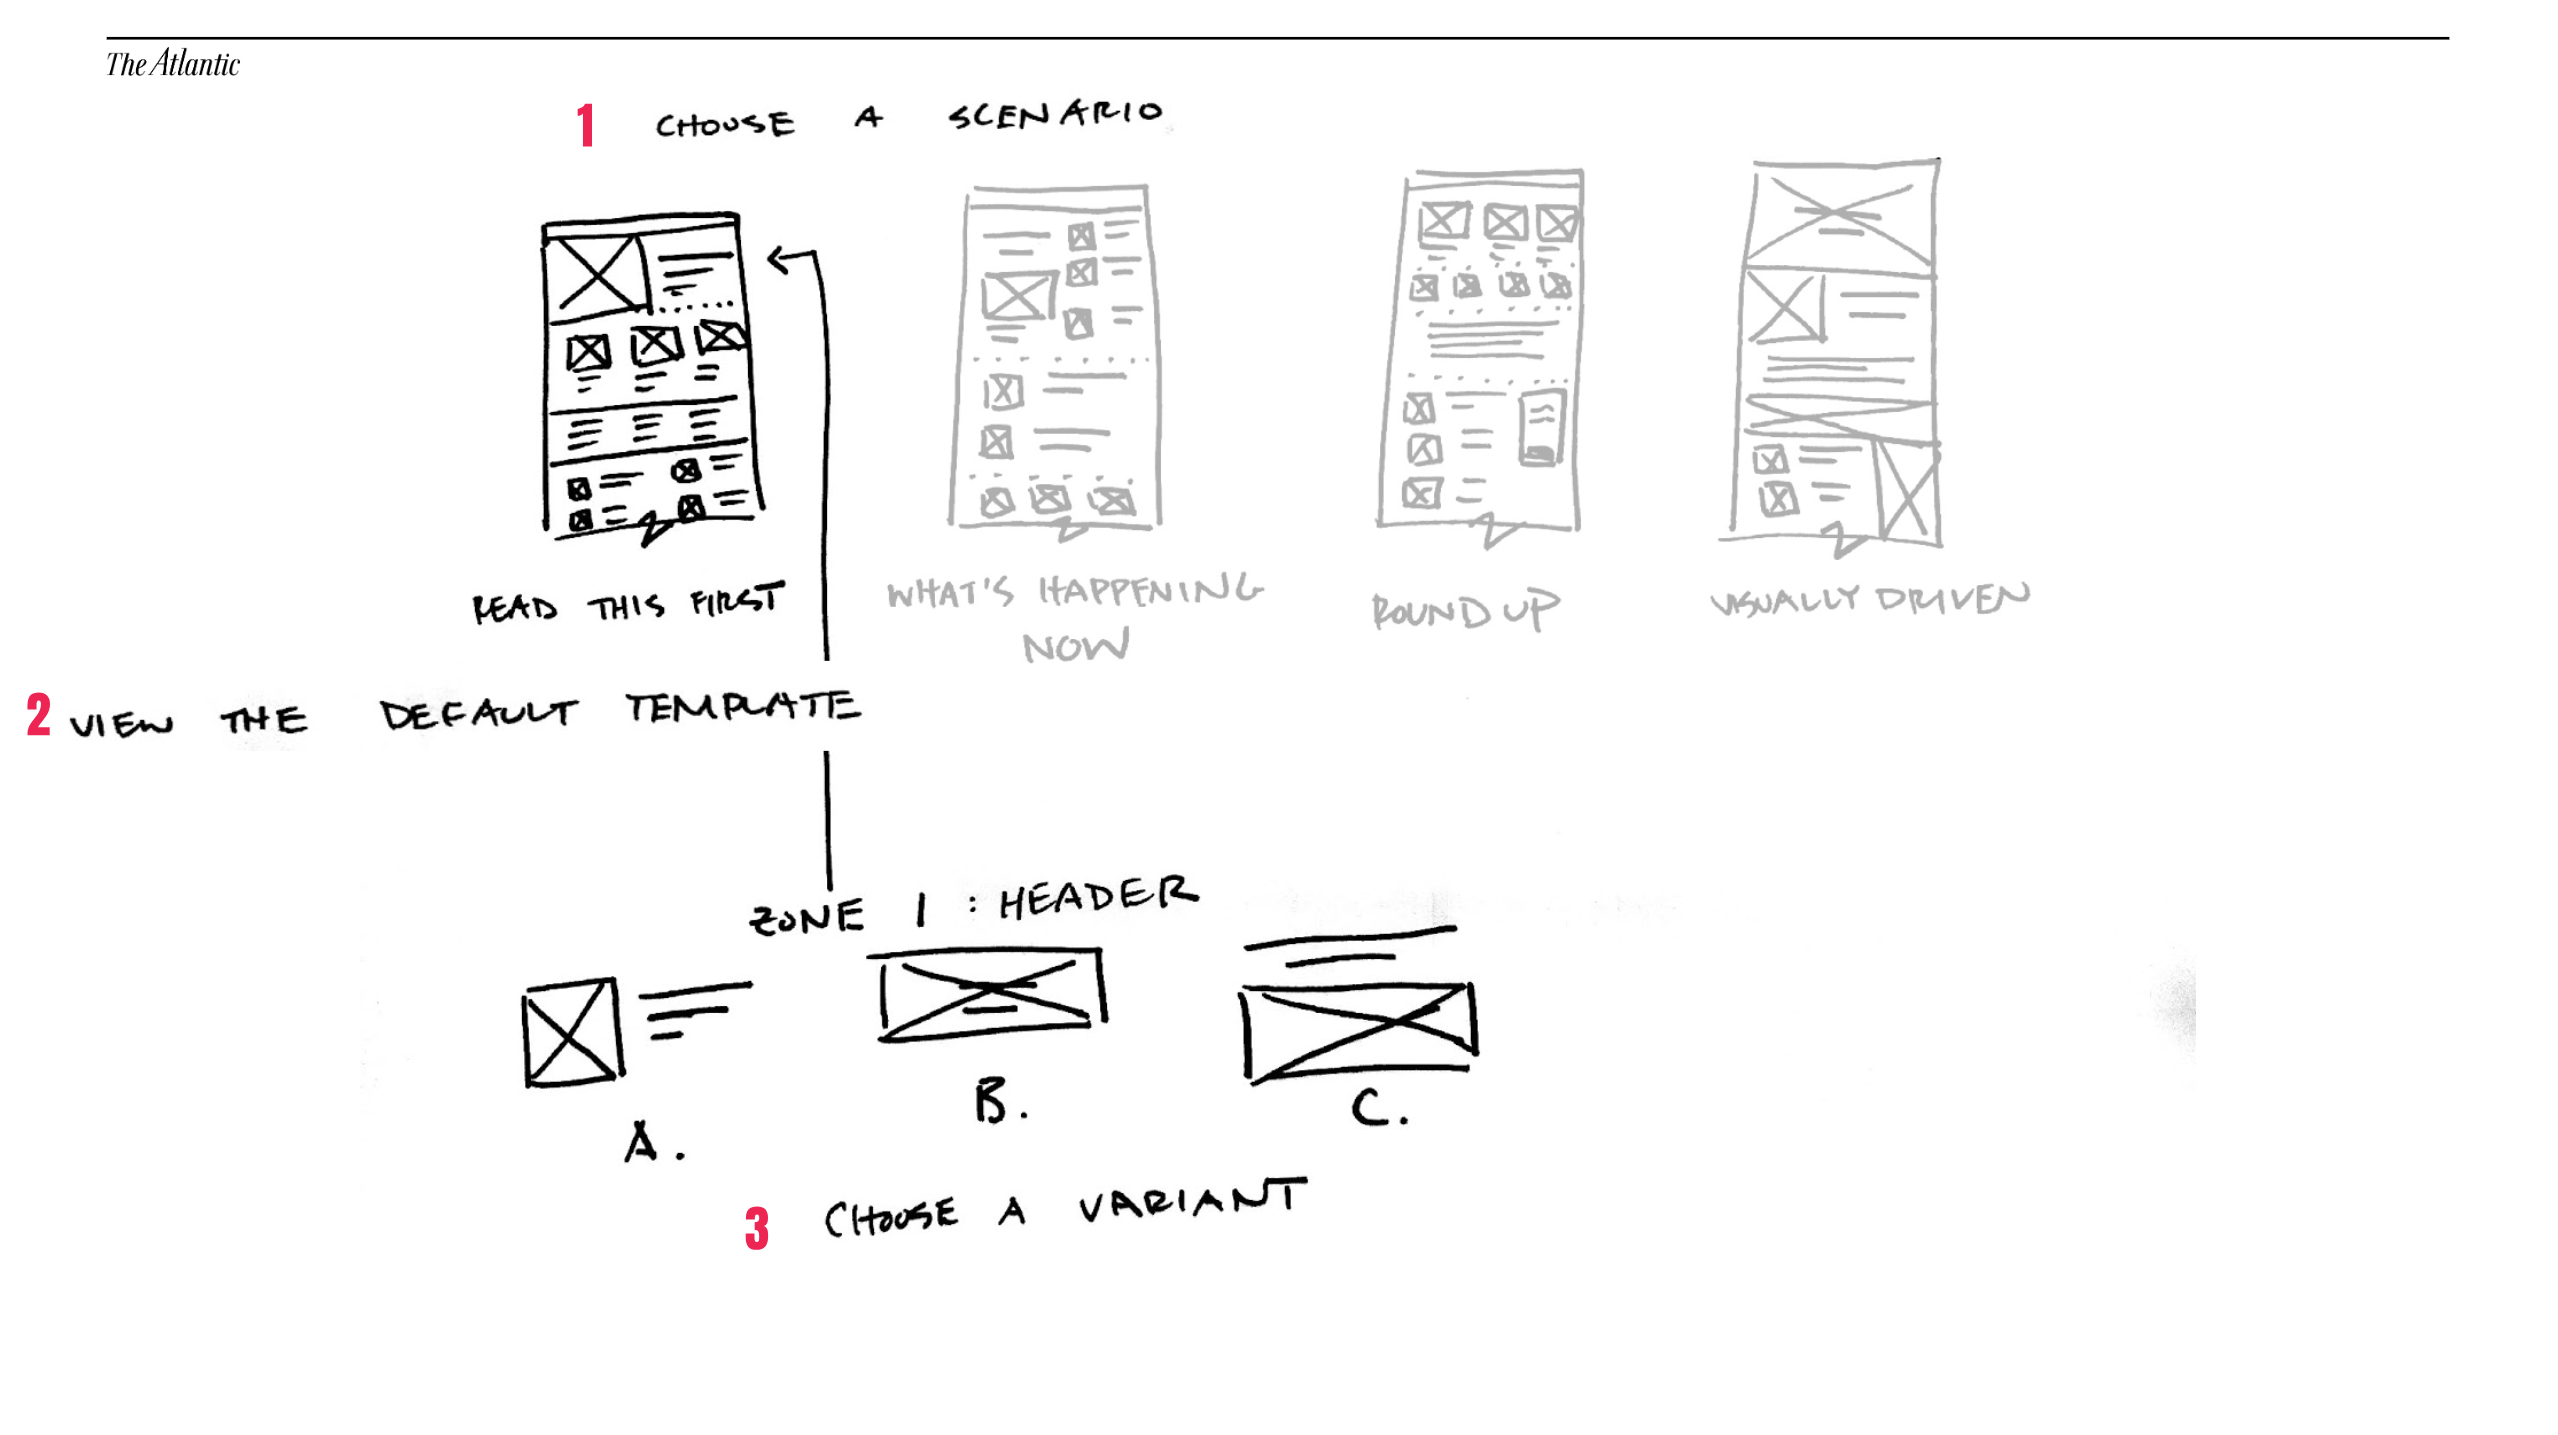 The Atlantic
1 CHOOSE A SCENARIO
READ THIS FIRST
WHAT'S HAPPENING
NOW
ROUND UP
VISUALLY DRIVEN
2 VIEW THE DEFAULT TEMPLATE
ZONE 1 : HEADER
A.
B.
C.
3 CHOOSE A VARIANT